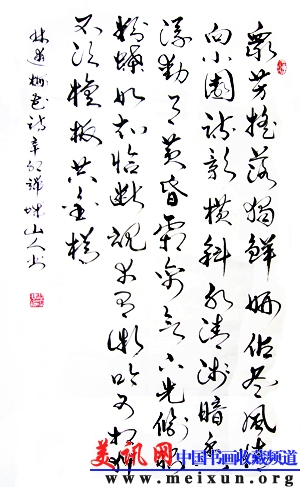 眾芳摇落獨鮮妍佔盡風情
向小園疏影橫斜水清淺暗香
浮動月黄昏霜禽欲下先偷眼
粉蝶如知恰斷魂幸有微吟可相狎
不須檀板共金樽
林逋梅花詩辛卯 山人书
美讯网 中国书画收藏频道
www.meixun.org